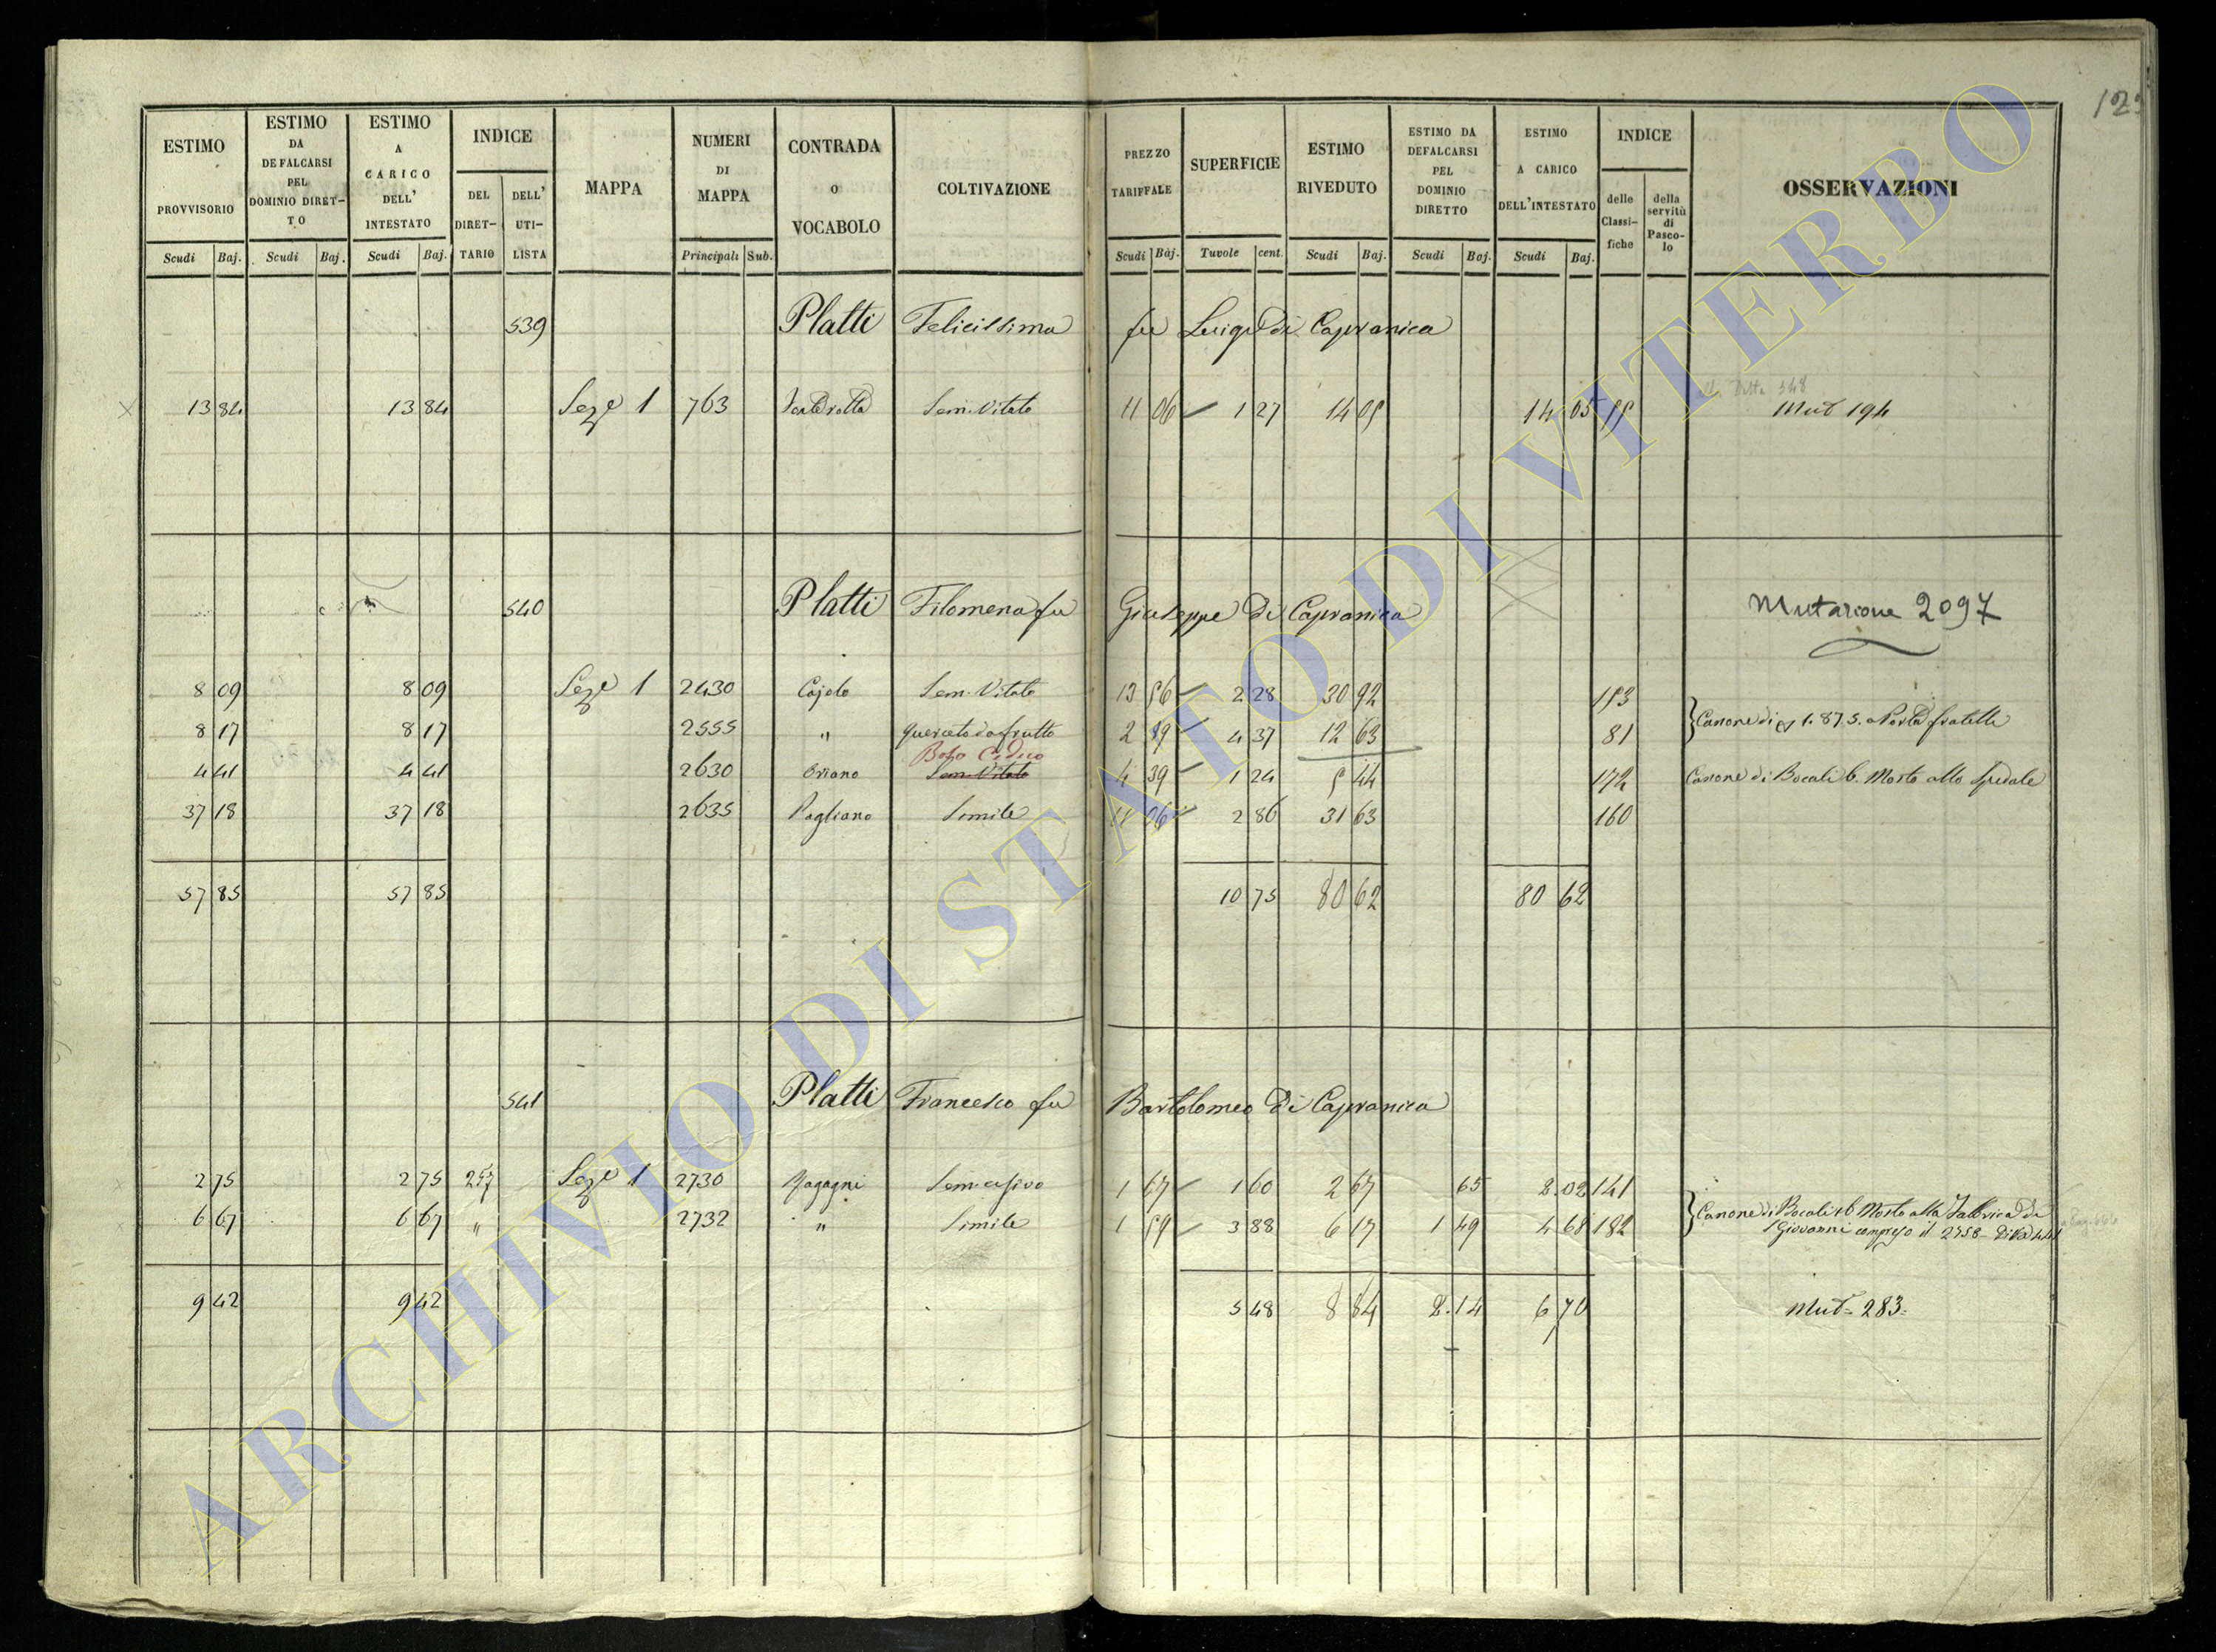 123
ESTIMO PROVVISORIO Scudi Baj.
ESTIMO DA DEFALCARSI PEL DOMINIO DIRET-TO Scudi Baj.
ESTIMO A CARICO DELL' INTESTATO Scudi Baj.
INDICE DEL DIRET-TARIO DELL' UTI-LISTA
MAPPA
NUMERI DI MAPPA Principali Sub.
CONTRADA O VOCABOLO
COLTIVAZIONE
PREZZO TARIFFALE Scudi Baj.
SUPERFICIE Tavole cent.
ESTIMO RIVEDUTO Scudi Baj.
ESTIMO DA DEFALCARSI PEL DOMINIO DIRETTO Scudi Baj.
ESTIMO A CARICO DELL'INTESTATO Scudi Baj.
INDICE delle Classi-fiche della servitù di Pasco-lo
OSSERVAZIONI
539 Platti Felicissima fu Luigi di Capranica
13 84 13 84 Sez.e 1 763 Sem. Vitato 11 06 1 27 14 05 14 05 55 Mut 194
540 Platti Filomena fu Giuseppe di Capranica Mutazione 2097
8 09 8 09 Sez.e 1 2430 Cajolo Sem. Vitato 13 56 2 28 30 92 153
8 17 8 17 2555 " querceto da frutto 2 89 4 37 12 63 81 Canone di 1.87.5. a Porta fratelli
Bosco Ceduo
4 41 4 41 2630 Oriano Sem. Vitato 4 39 1 24 5 44 172 Canone di Bocali 6. Mosto allo Spedale
37 18 37 18 2635 Pagliano Simile 11 06 2 86 31 63 160
57 85 57 85 10 75 80 62 80 62
541 Platti Francesco fu Bartolomeo di Capranica
2 75 2 75 257 Sez.e 1 2730 1 67 1 60 2 67 65 2.02 141
6 67 6 67 " 2732 " Simile 1 59 3 88 6 17 1 49 4 68 182 Canone di Bocali 16 Mosto alla Fabbrica di
S Giovanni compreso il 2758
9 42 9 42 5 48 8 84 2.14 6 70 Mut = 283 =
ARCHIVIO DI STATO DI VITERBO